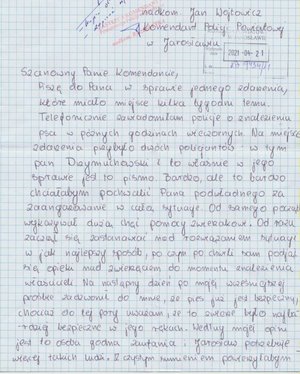 nadkom Jan Wojtowicz
Komendant Policji Powiatowej
w Jarosławiu
2021-04-21
Szanowny Panie Komendancie,
Piszę do Pana w sprawie jednego zdarzenia,
które miało miejsce kilka tygodni temu.
Telefonicznie zawiadomiłam policję o znalezieniu
psa w późnych godzinach wieczornych. Na miejsce
zdarzenia przybyło dwóch policjantów: w tym
pan i to właśnie w jego
sprawie jest to pismo. Bardzo, ale to bardzo
chciałabym pochwalić Pana podwładnego za
zaangażowanie w całą sytuację. Od samego początku
wykazywał dużą chęć pomocy zwierzakowi. Od razu
zaczął się zastanawiać nad rozwiązaniem sytuacji
w jak najlepszy sposób, po czym po chwili sam podjął
się opieki nad zwierzęciem do momentu znalezienia
właścicieli. Na następny dzień po mojej wcześniejszej
prośbie zadzwonił do mnie, że pies już jest bezpieczny,
chociaż do tej pory uważam, że to zwierzę było najbar-
dziej bezpieczne w jego rękach. Według mojej opinii
jest to osoba godna zaufania i Jarosław potrzebuje
więcej takich ludzi. Z czystym sumieniem powierzyłabym